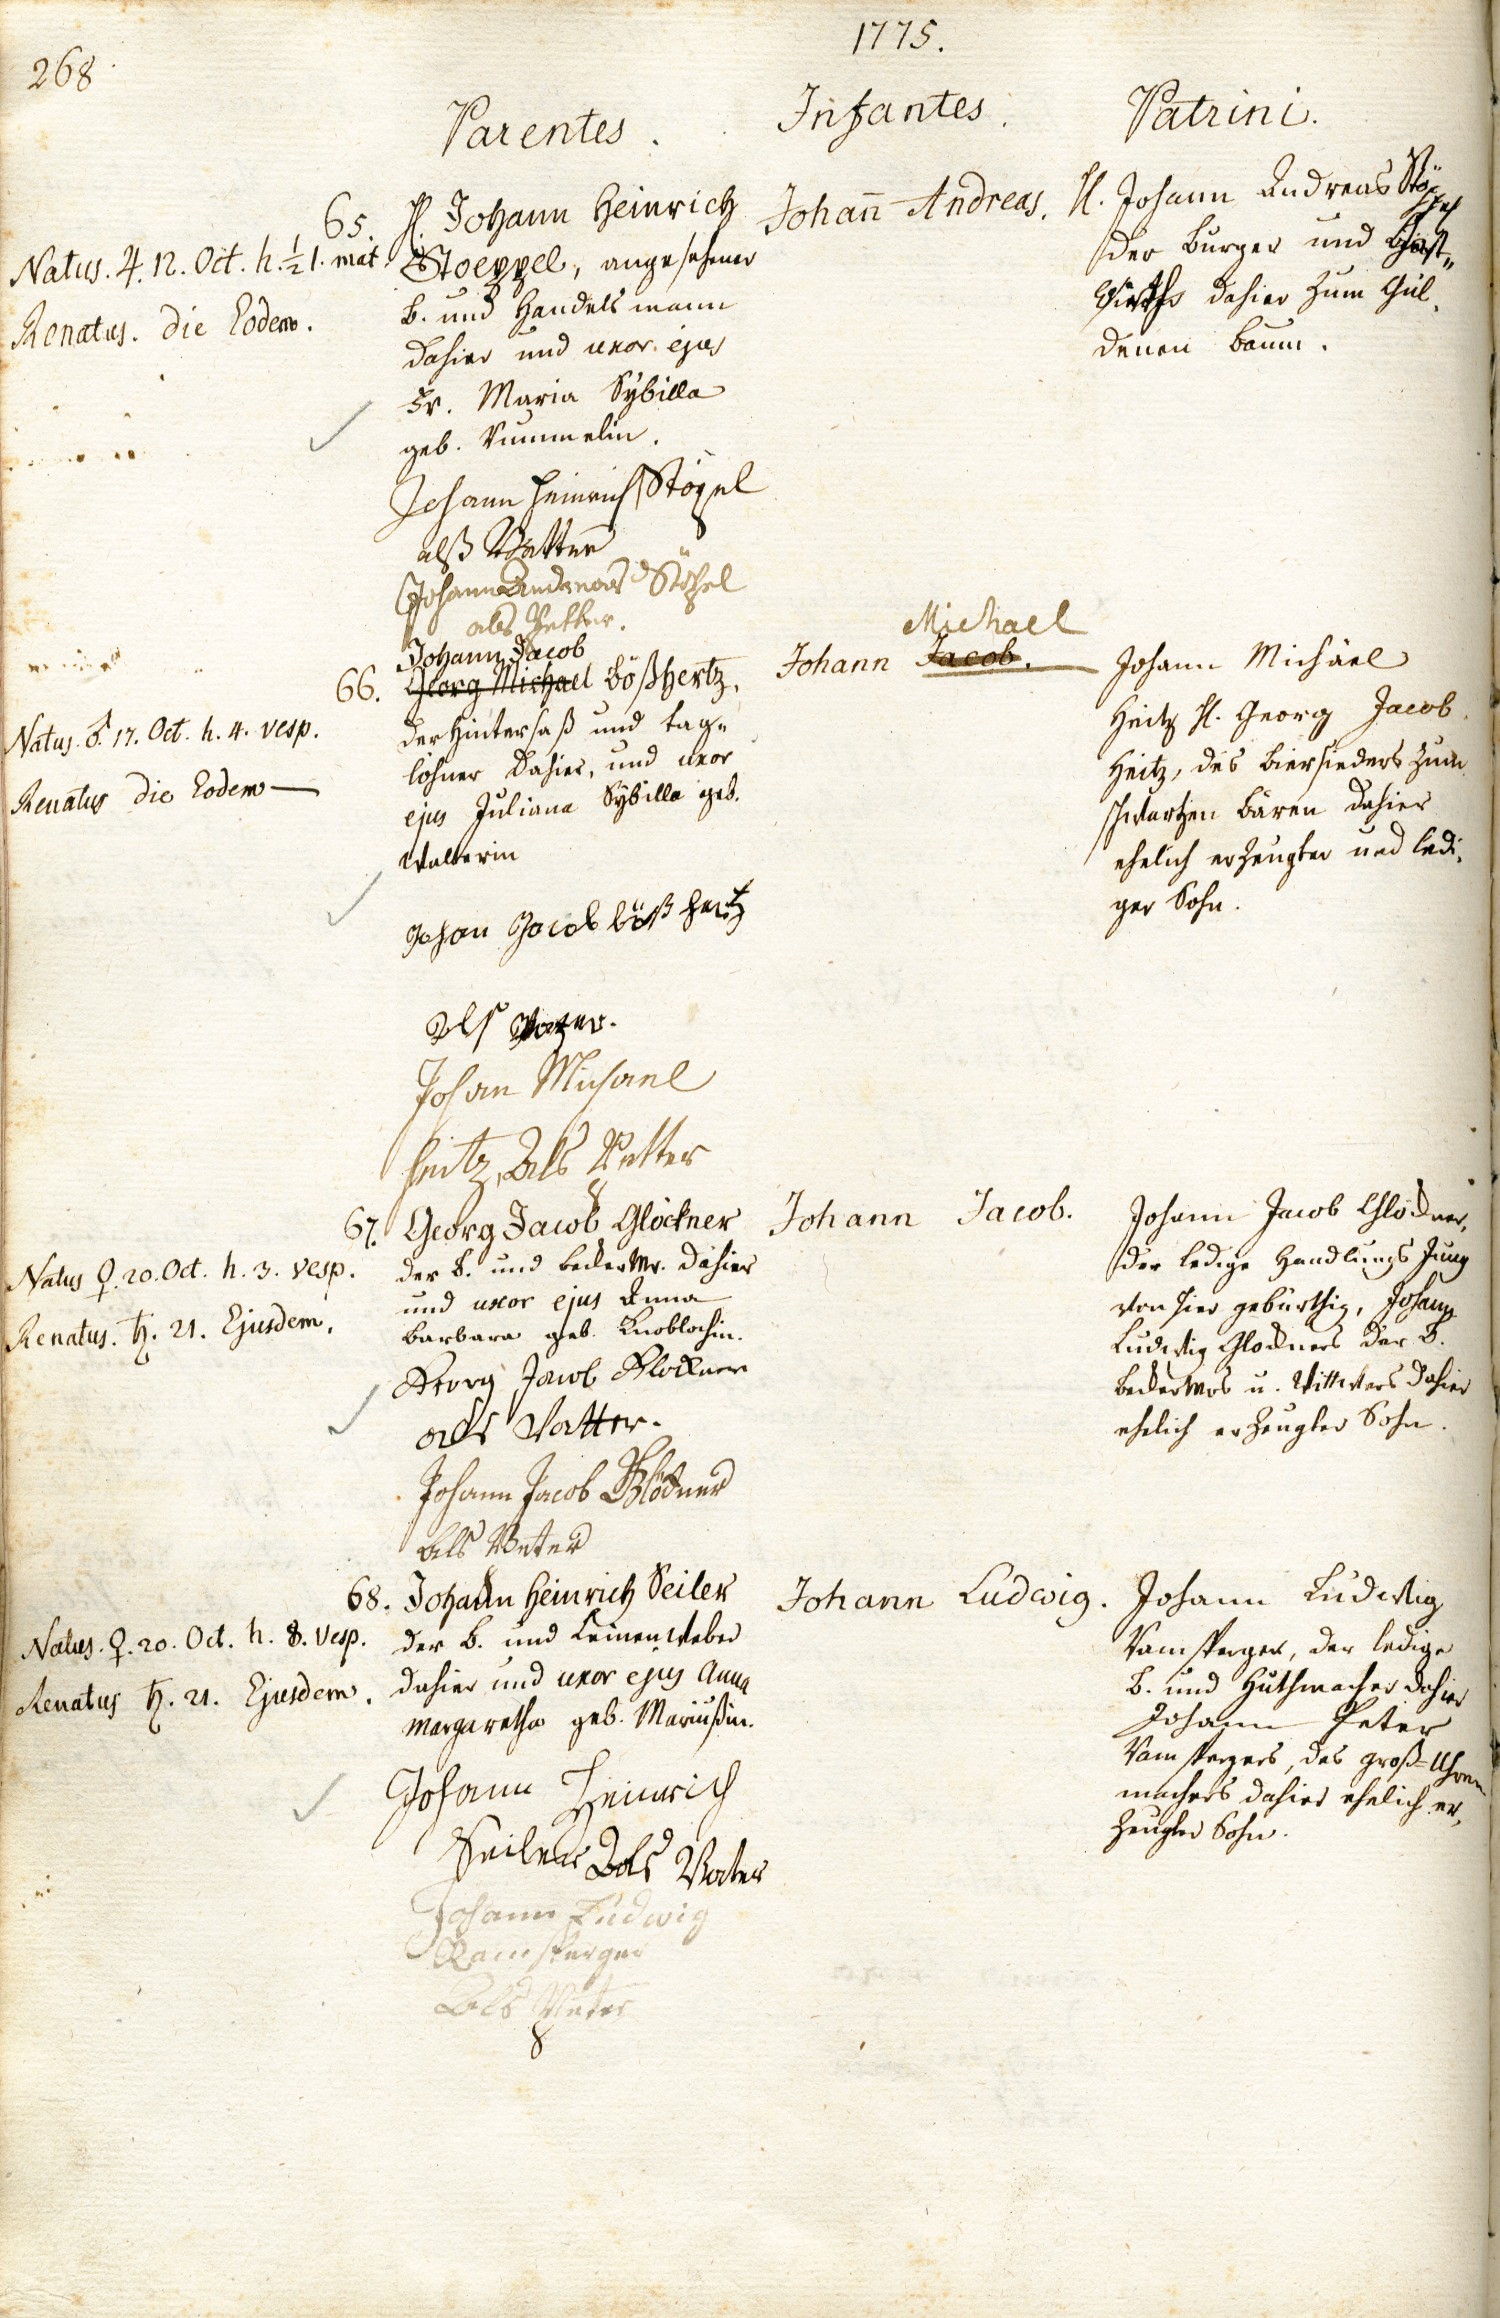 268
1775.
Parentes.
Infantes.
Patrini.
65.
Natus. ♃. 12. Oct. h. ½ 1. mat.
Renatus. die Eodem.
H. Johann Heinrich
Stoeppel, angesehener
B. und Handelsmann
dahier und uxor ejus
Fr. Maria Sybilla
geb.
Johann Heinrich Stöpel
alß Vatter
Johann Andreas Stöpel
als Petter.
Johann Andreas.
H. Johann Andreas
der Burger und Gast„
Wirth dahier zum Gül,
denen Baum.
66.
Natus. ♂. 17. Oct. h. 4. vesp.
Renatus die Eodem
Johann Jacob
Georg Michael Bößhertz,
der Hintersaß und tag„
löhner dahier, und uxor
ejus Juliana Sÿbilla geb.
Walterin
Johan Jacob bößhertz
Als Vatter.
Johan Michael
Heitz, Als Petter
Michael
Johann Jacob.
Johann Michäel
Heitz H. Georg Jacob
Heitz, des Biersieders zum
schwartzen Bären dahier
ehelich erzeugter und ledi,
ger Sohn.
67.
Natus ♀. 20. Oct. h. 3. vesp.
Renatus. ♄. 21. Ejusdem.
Georg Jacob Glöckner
der B. und beckerMr. dahier
und uxor ejus Anna
Barbara geb. Knoblochin.
Georg Jacob Glockner
als Vatter.
Johann Jacob Glöckner
als Petter
Johann Jacob.
Johann Jacob Glöckner,
der ledige Handlungs Jung
von hier gebürthig, Johann
Ludwig Glockners der B.
BeckerMrs u. Wittwers dahier
ehelich erzeugter Sohn.
68.
Natus. ♀. 20. Oct. h. 8. vesp.
Renatus ♄. 21. Ejusdem.
Johann Heinrich Seiler
der B. und Leinenweber
dahier und uxor ejus Anna
Margaretha geb. Mariußin.
Johann Heinrich
Seiler Als Vater
Johann Ludwig
Ramsperger
Als Petter
Johann Ludwig.
Johann Ludwig
Ramsperger, der ledige
B. und Huthmacher dahier
Johann Peter
Ramspergers, des groß=Uhren
machers dahier ehelich er,
zeugter Sohn.